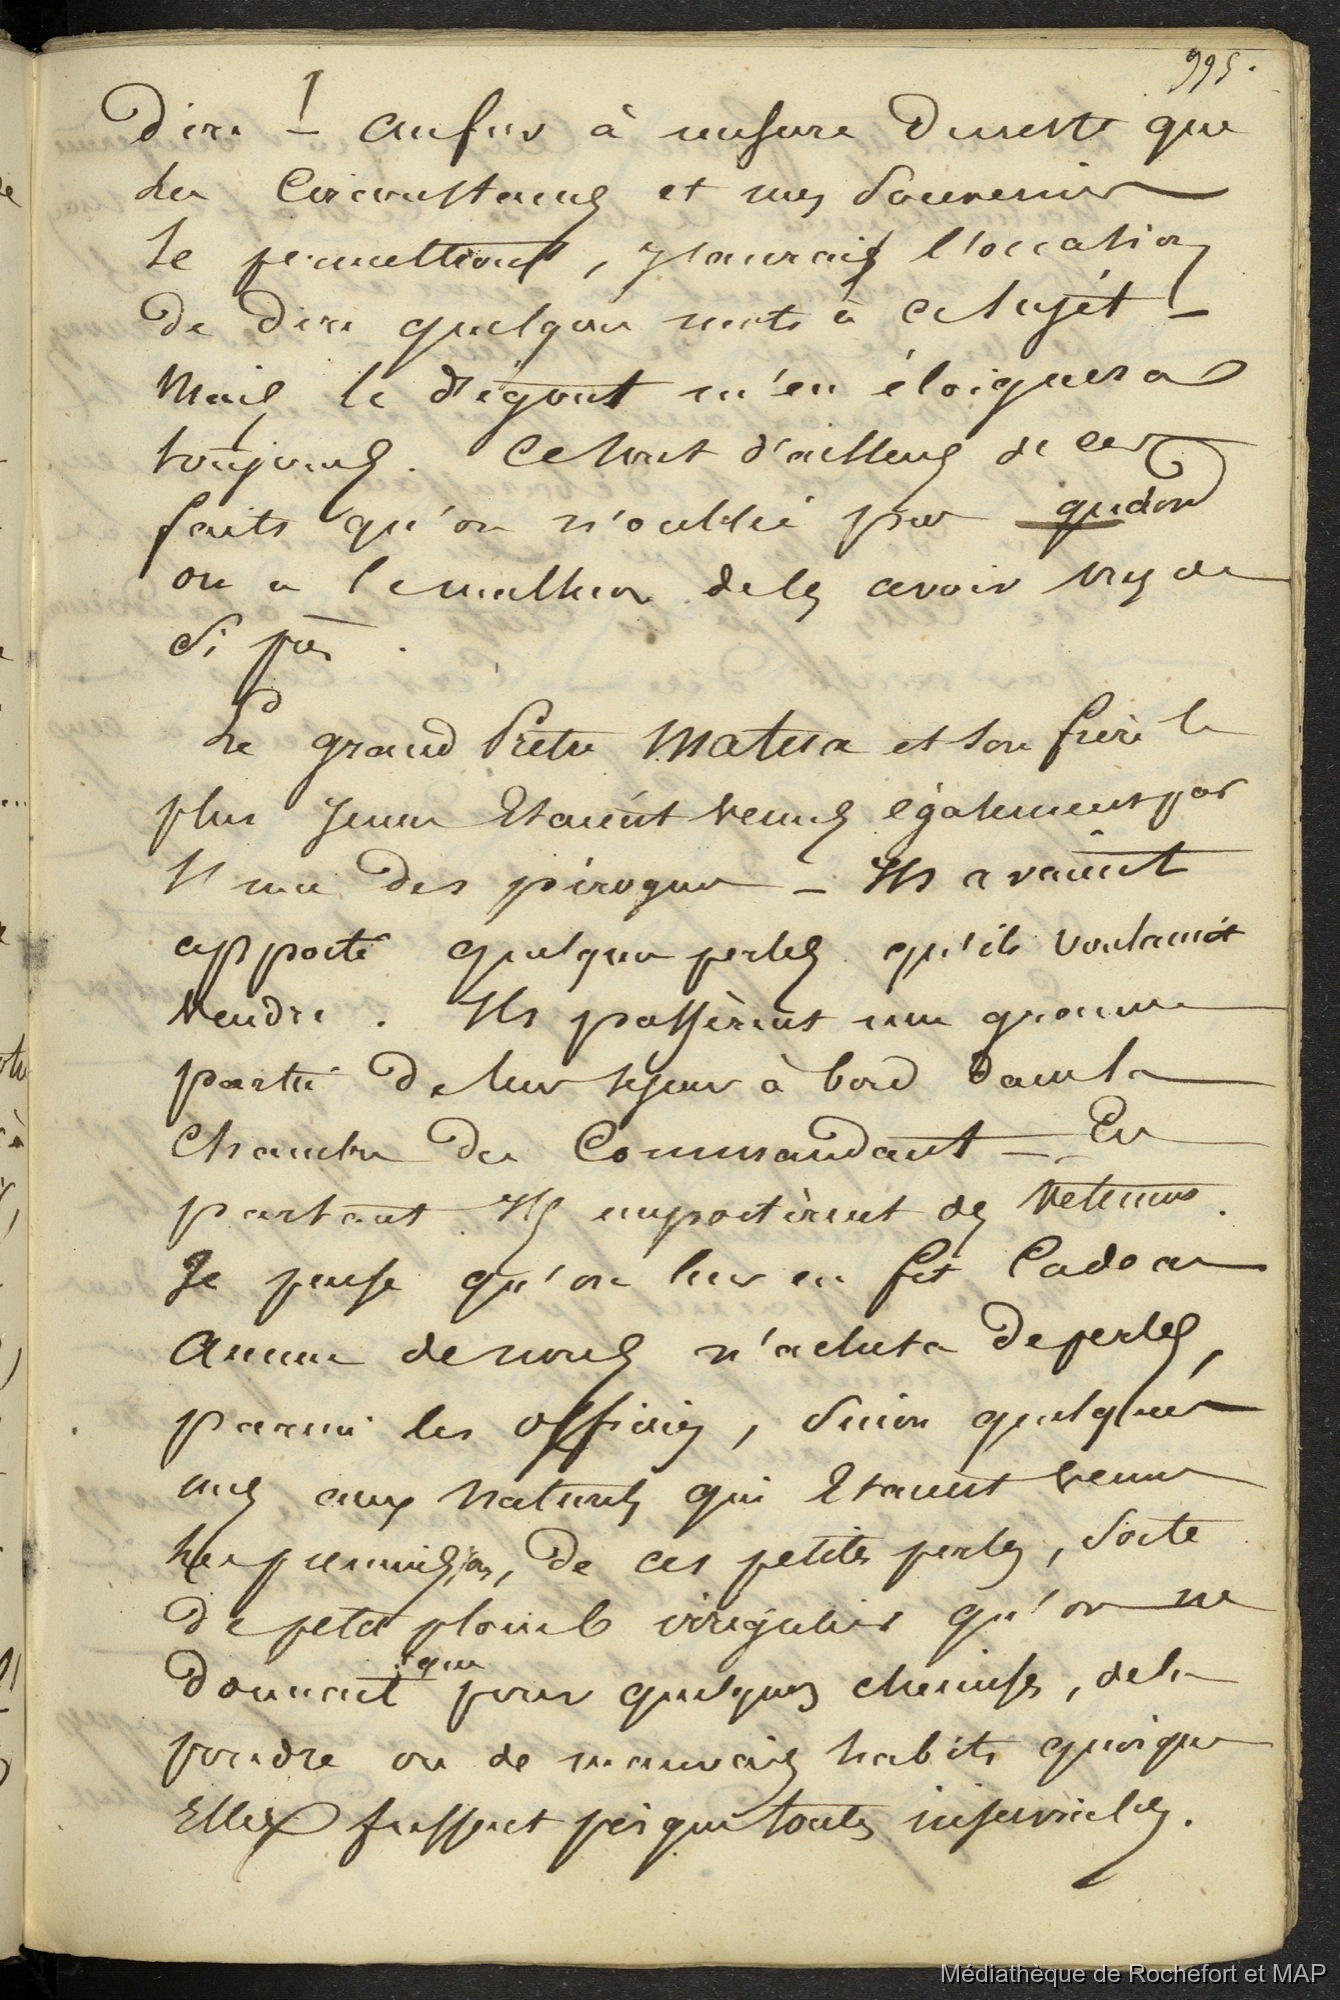 995.
Dire ! – Au fur à mesure Dureste que
les Circonstances et mes Souvenirs
le permettront, j'aurais l'occasion
de dire quelques mots à ce sujet –
Mais le dégout m'en éloignera
toujours. Ce sont d'ailleurs de ces
faits qu'on n'oublie pas quand
on a le malheur de les avoir vus de
si près.
Le grand Prêtre Matua et son frère le
plus jeune Etaient venus également par
l'une des pirogues – Ils avaient
apporté quelques perles qu'ils voulaient
vendre. Ils passèrent une grande
partie de leur séjour à bord dans la
Chambre du Commandant – En
partant Ils emportèrent des Vetemens.
Je pense qu'on leur en fit Cadeau
Aucun de nous n'acheta de perles,
parmi les officiers, Sinon quelques
unes aux naturels qui Etaient venus
les premiers, de ces petites perles, Sorte
de petit plomb irrégulier qu'on ne
donnait que pour quelques chemises, de la
poudre ou de mauvais habits quoique
Elles fussent presque toutes inservibles.
Médiathèque de Rochefort et MAP